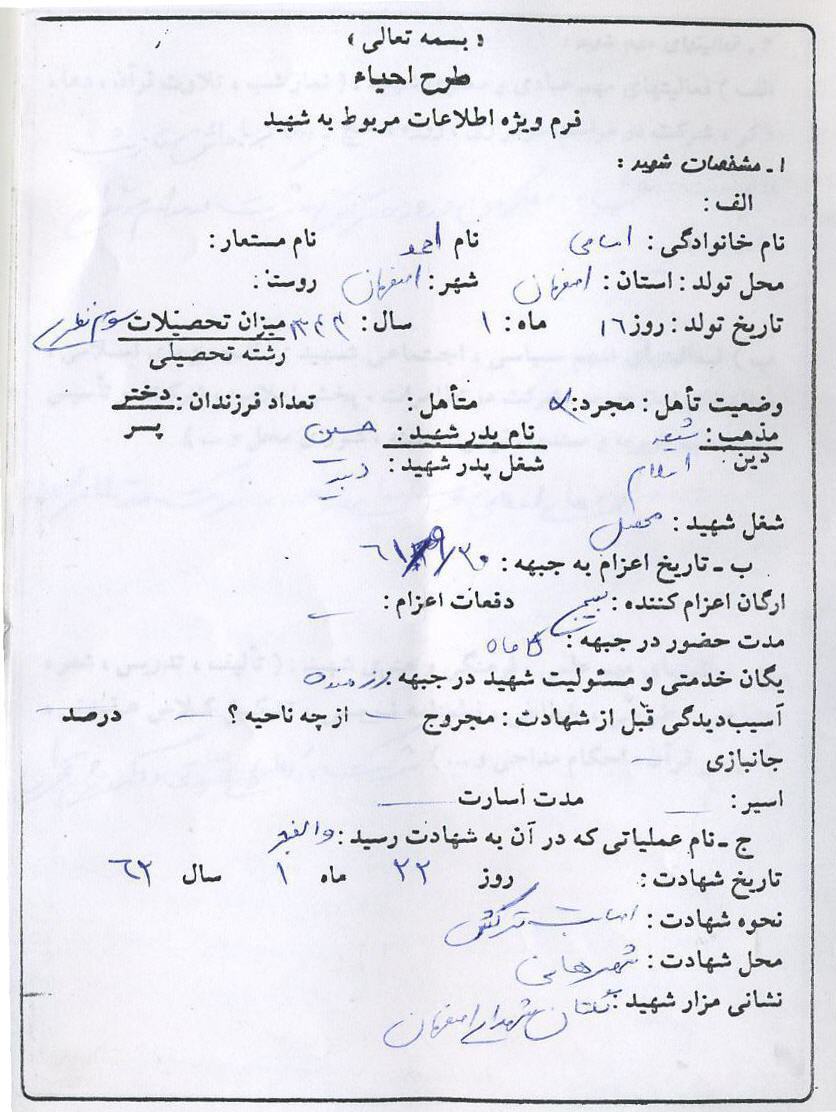 ( بسمه تعالی )
طرح احیاء
فرم ویژه اطلاعات مربوط به شهید
۱ ـ مشخصات شهید :
الف :
نام خانوادگی : امامی نام احمد نام مستعار :
محل تولد : استان : اصفهان شهر : اصفهان روستا :
تاریخ تولد : روز ۱۶ ماه : ۱ سال : ۱۳۴۴ میزان تحصیلات سوم نظری
رشته تحصیلی
وضعیت تأهل : مجرد : × متأهل : تعداد فرزندان : دختر
پسر
مذهب : شیعه نام پدر شهید : حسین
دین : اسلام شغل پدر شهید : دبیر
شغل شهید : محصل
ب ـ تاریخ اعزام به جبهه : ۶۱/۹/۳۰
ارگان اعزام کننده : بسیج دفعات اعزام :
مدت حضور در جبهه : ماه
یگان خدمتی و مسئولیت شهید در جبهه رزمنده
آسیب‌دیدگی قبل از شهادت : مجروح از چه ناحیه ؟ درصد
جانبازی
اسیر : مدت اسارت
ج ـ نام عملیاتی که در آن به شهادت رسید : والفجر
تاریخ شهادت : روز ۲۲ ماه ۱ سال ۶۲
نحوه شهادت : اصابت ترکش
محل شهادت : شرهانی
نشانی مزار شهید : گلستان شهدای اصفهان